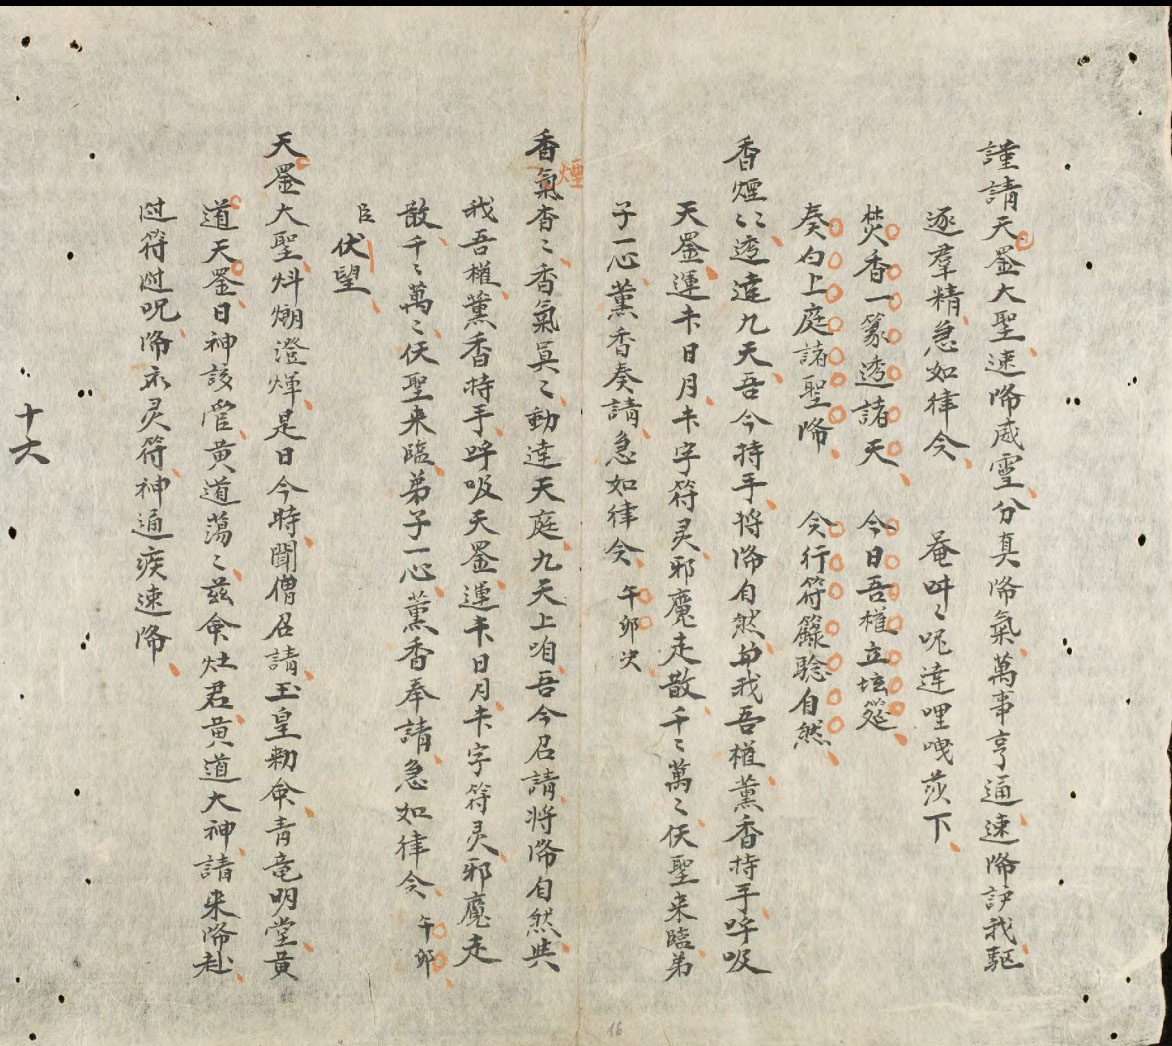 謹請天罡大聖速降威灵分真降氣萬事亨通速降護我駆
逐羣精急如律令 菴吽〻呢達哩哋莎下
焚香一篆透諸天 今日吾權立坛筵
奏向上庭諸聖降 令行符籙騐自然
香煙〻透達九天吾今持手将降自然助我吾權薰香持手呼吸
天罡運卡日月卡字符灵邪魔走散千〻萬〻伏聖来臨弟
子一心薰香奏請急如律令 午卯决
香氣杳〻香氣冥〻動達天庭九天上咱吾今召請将降自然共
煙
我吾權薰香持手呼吸天罡運卡日月卡字符灵邪魔走
散千〻萬〻伏聖来臨弟子一心薰香奉請急如律令 午卯
臣 伏望
天罡大聖炓煳澄燁是日今時聞僧召請玉皇勅命青竜明堂黄
道天罡日神該管黄道蕩〻兹命灶君黄道大神請来降赴
过符过呪降永灵符神通疾速降
十六
16